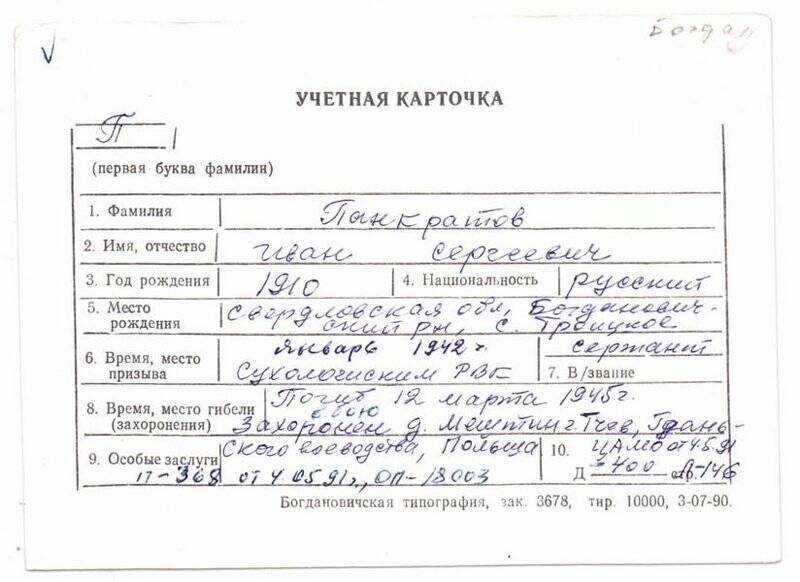 Богдан
УЧЕТНАЯ КАРТОЧКА
П
(первая буква фамилии)
1. Фамилия Панкратов
2. Имя, отчество Иван Сергеевич
3. Год рождения 1910 4. Национальность русский
5. Место рождения Свердловская обл, Богданович-
ский рн, с. Троицкое
6. Время, место призыва январь 1942 г. сержант
Сухоложским РВК 7. В/звание
8. Время, место гибели (захоронения) Погиб 12 марта 1945г.
в бою
Захоронен д. Мештин г. Тчев, Гдань-
9. Особые заслуги ского воеводства, Польша 10. ЦАМО от 4.5.91
П-368 от 4.05.91г., ОП-18003 Д-400 Л-146
Богдановичская типография, зак. 3678, тир. 10000, 3-07-90.